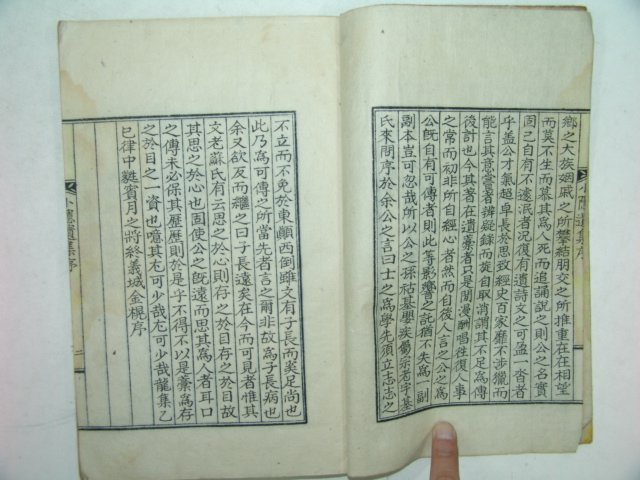 鄉之大族姻戚之所攀結朋交之所推重在在相望
而莫不生而慕其為人死而追誦說之則公之名實
固已自有不遠泯者況復有遺詩文之可盈一沓者
乎盖公才氣超卓長於思致經史百家靡不涉獵而
能言其意嘗著辨疑錄而旋自取
謂其不足為傳
後計也今其著在遺藁者只是閒漫酬唱徃復人事
之常而初非所自經心者然而自後人言之公之為
公旣自有可傳者則此等影響之託猶不失為一副
副本豈可忽哉所以公之孫
基學疾
宗君
基
氏來問序於余公之言曰士之為學先須立志志之
不立而不免於東顚西倒雖文有子長而奚足尚也
此乃為可傳之所當先者言之爾非故為子長病也
余又欲反而繼之曰子長遠矣在今而可見者惟其
文老蘇氏有云思之於心則存之於目存之於目故
其思之於心也固使公之旣遠而思其為人者耳口
之傳未必保其歷歷則於是乎不得不以是藁為存
之於目之一資也噫其尤可少哉尤可少哉龍集乙
巳律中蕤賓月之將終義城金榥序
小
遺集序
二